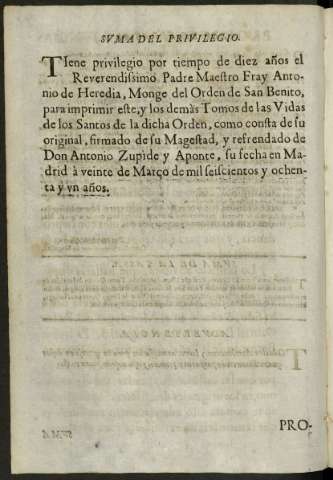 SVMA DEL PRIVILEGIO.
TIene privilegio por tiempo de diez años el
Reverendissimo Padre Maestro Fray Anto-
nio de Heredia, Monge del Orden de San Benito,
para imprimir este, y los demàs Tomos de las Vidas
de los Santos de la dicha Orden, como consta de su
original, firmado de su Magestad, y refrendado de
Don Antonio Zupide y Aponte, su fecha en Ma-
drid à veinte de Março de mil seiscientos y ochen-
ta y vn años.
PRO-